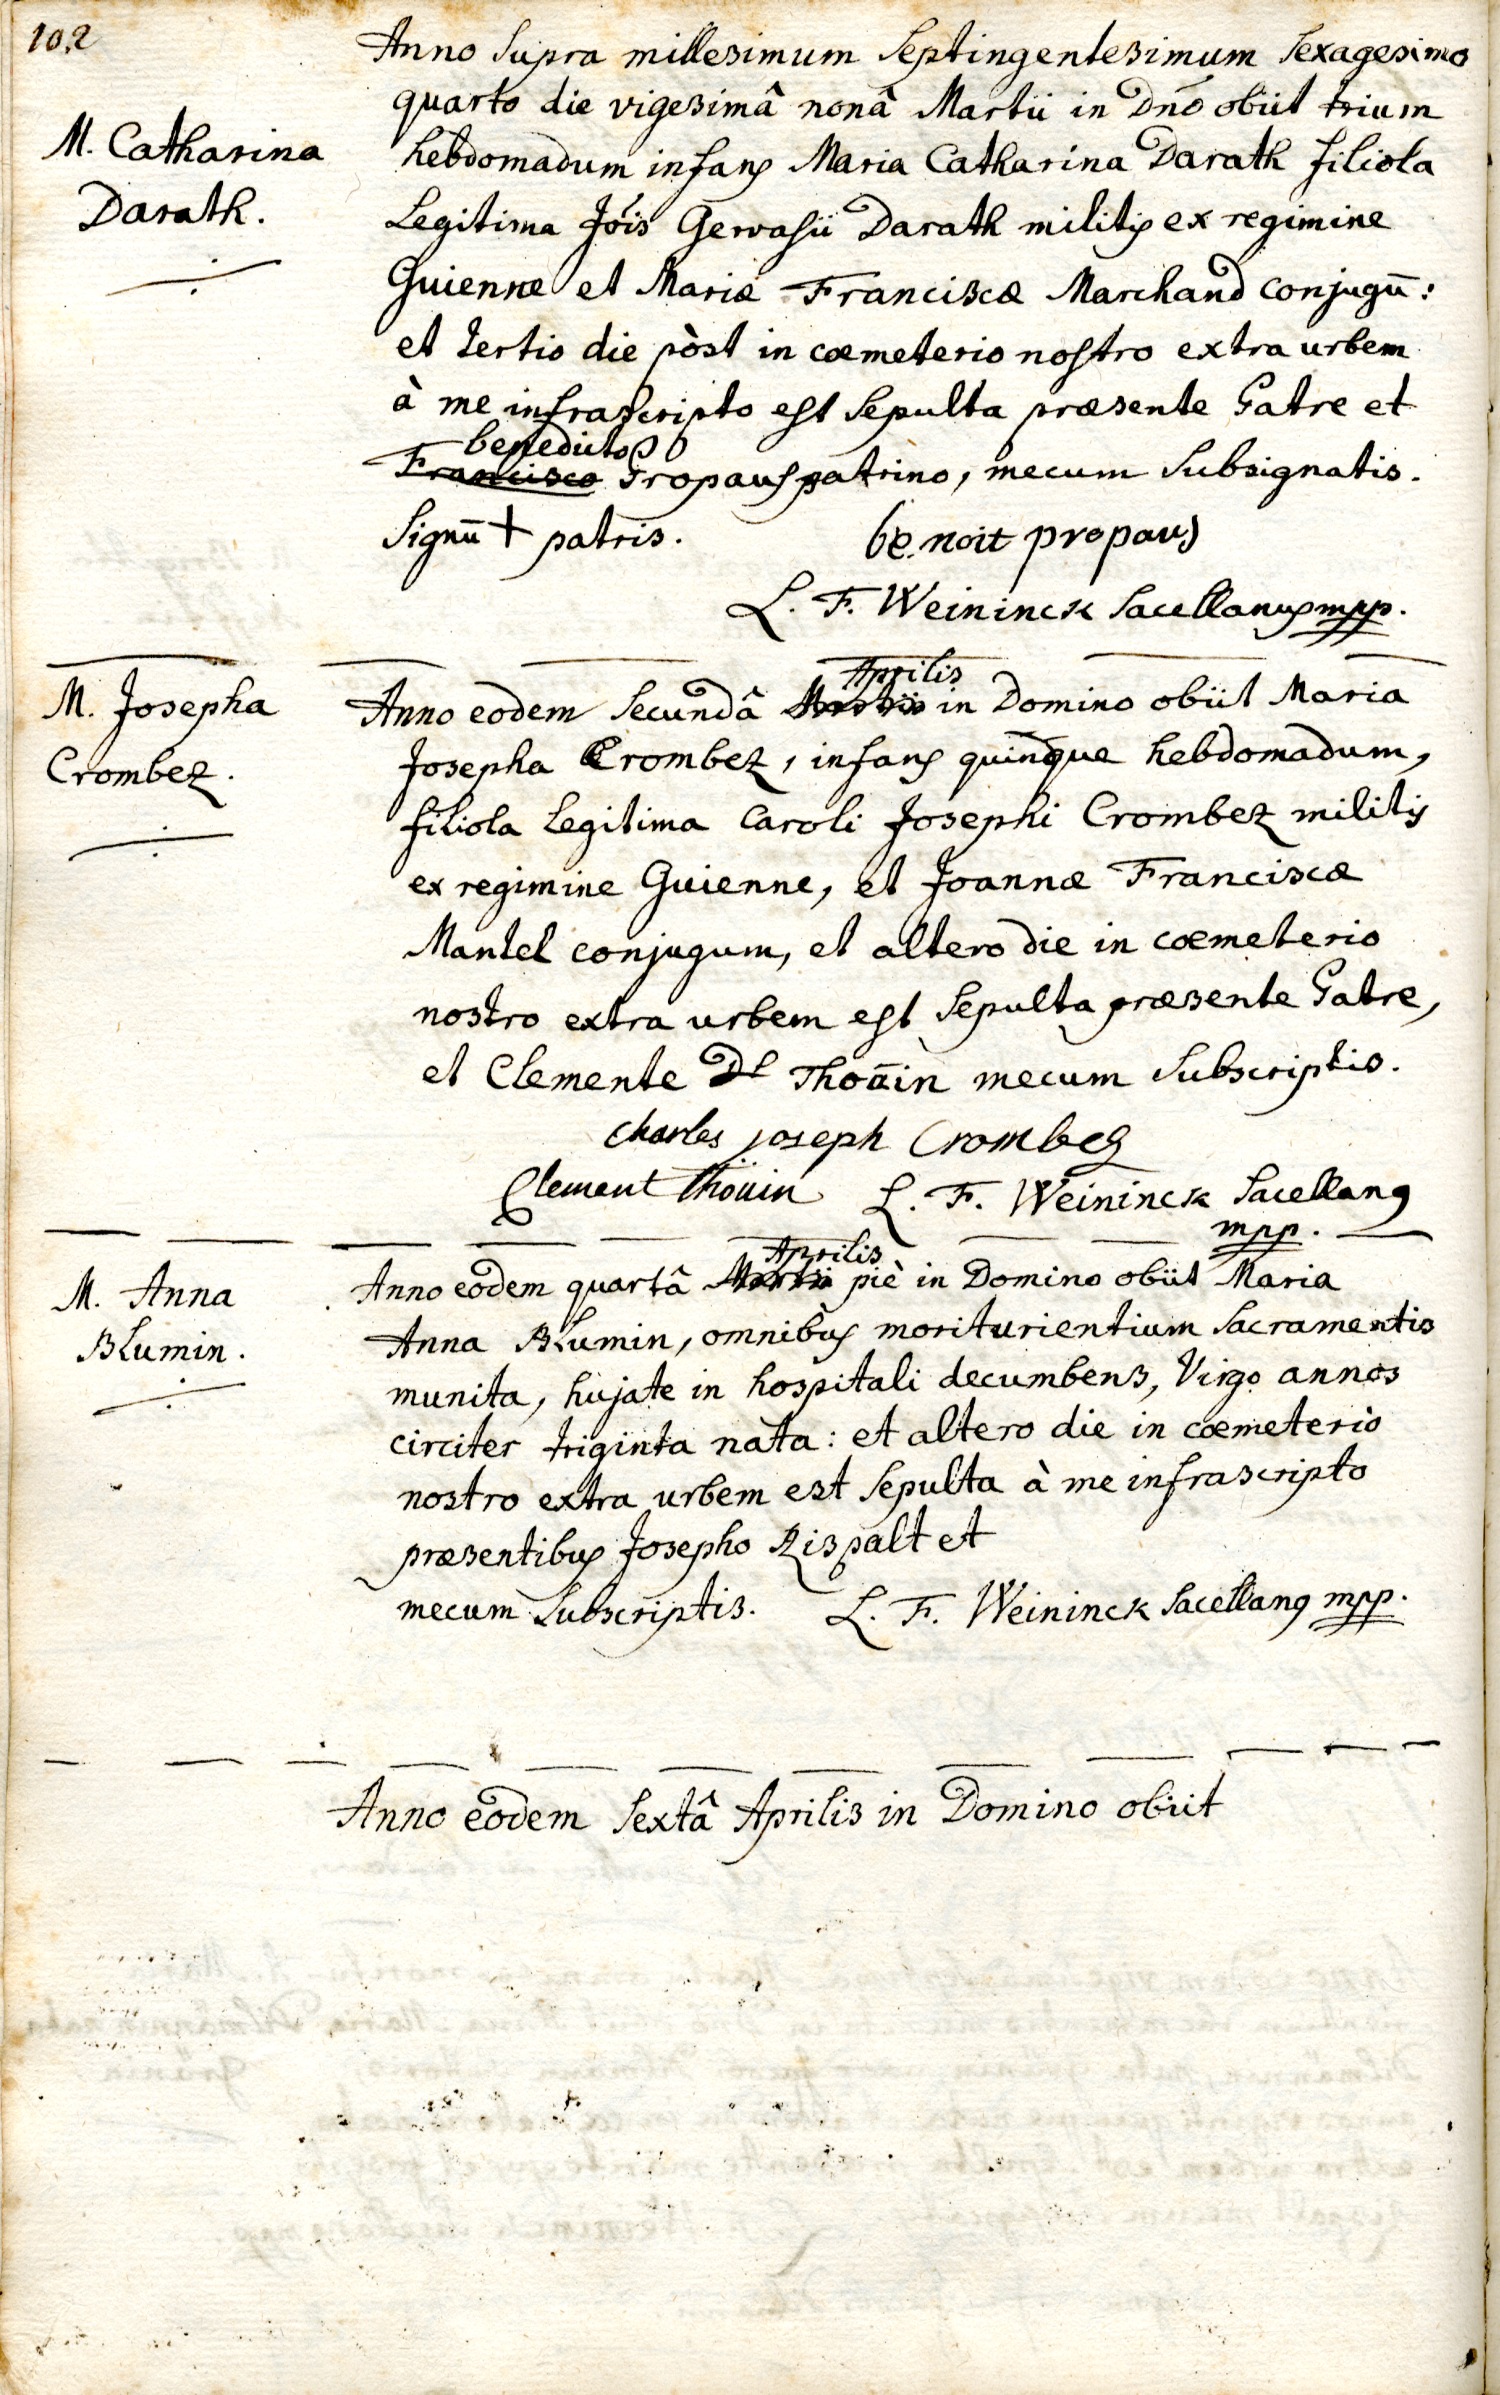 102
M. Catharina
Darath.
Anno supra millesimum septingentesimum sexagesimo
quarto die vigesimâ nonâ Martii in Dn̄o obiit trium
hebdomadum infans Maria Catharina Darath filiola
legitima Jōis Gervasii Darath militis ex regimine
Guienne et Mariæ Franciscæ Marchand conjugū:
et tertio die pòst in cœmeterio nostro extra urbem
à me infrascripto est sepulta præsente Patre et
benedicto
Francisco Propaus patrino, mecum subsignatis.
Signū + patris. benoit propaus
L. F. Weininck sacellanus mpp.
M. Josepha
Crombez.
Aprilis
Anno eodem secundâ Martii in Domino obiit Maria
Josepha Crombez, infans quinque hebdomadum,
filiola legitima Caroli Josephi Crombez militis
ex regimine Guienne, et Joannæ Franciscæ
Mantel conjugum, et altero die in cœmeterio
nostro extra urbem est sepulta præsente Patre,
et Clemente Dl Thoüin mecum subscriptis.
charles joseph Crombez
Clement Thoüin L. F. Weininck sacellanus
mpp.
M. Anna
Blumin.
Aprilis
Anno eodem quartâ Martii piè in Domino obiit Maria
Anna Blumin, omnibus moriturientium sacramentis
munita, hujate in hospitali decumbens, Virgo annos
circiter triginta nata: et altero die in cœmeterio
nostro extra urbem est sepulta à me infrascripto
præsentibus Josepho Rispalt et
mecum subscriptis. L. F. Weininck sacellanus mpp.
Anno eodem sextâ Aprilis in Domino obiit